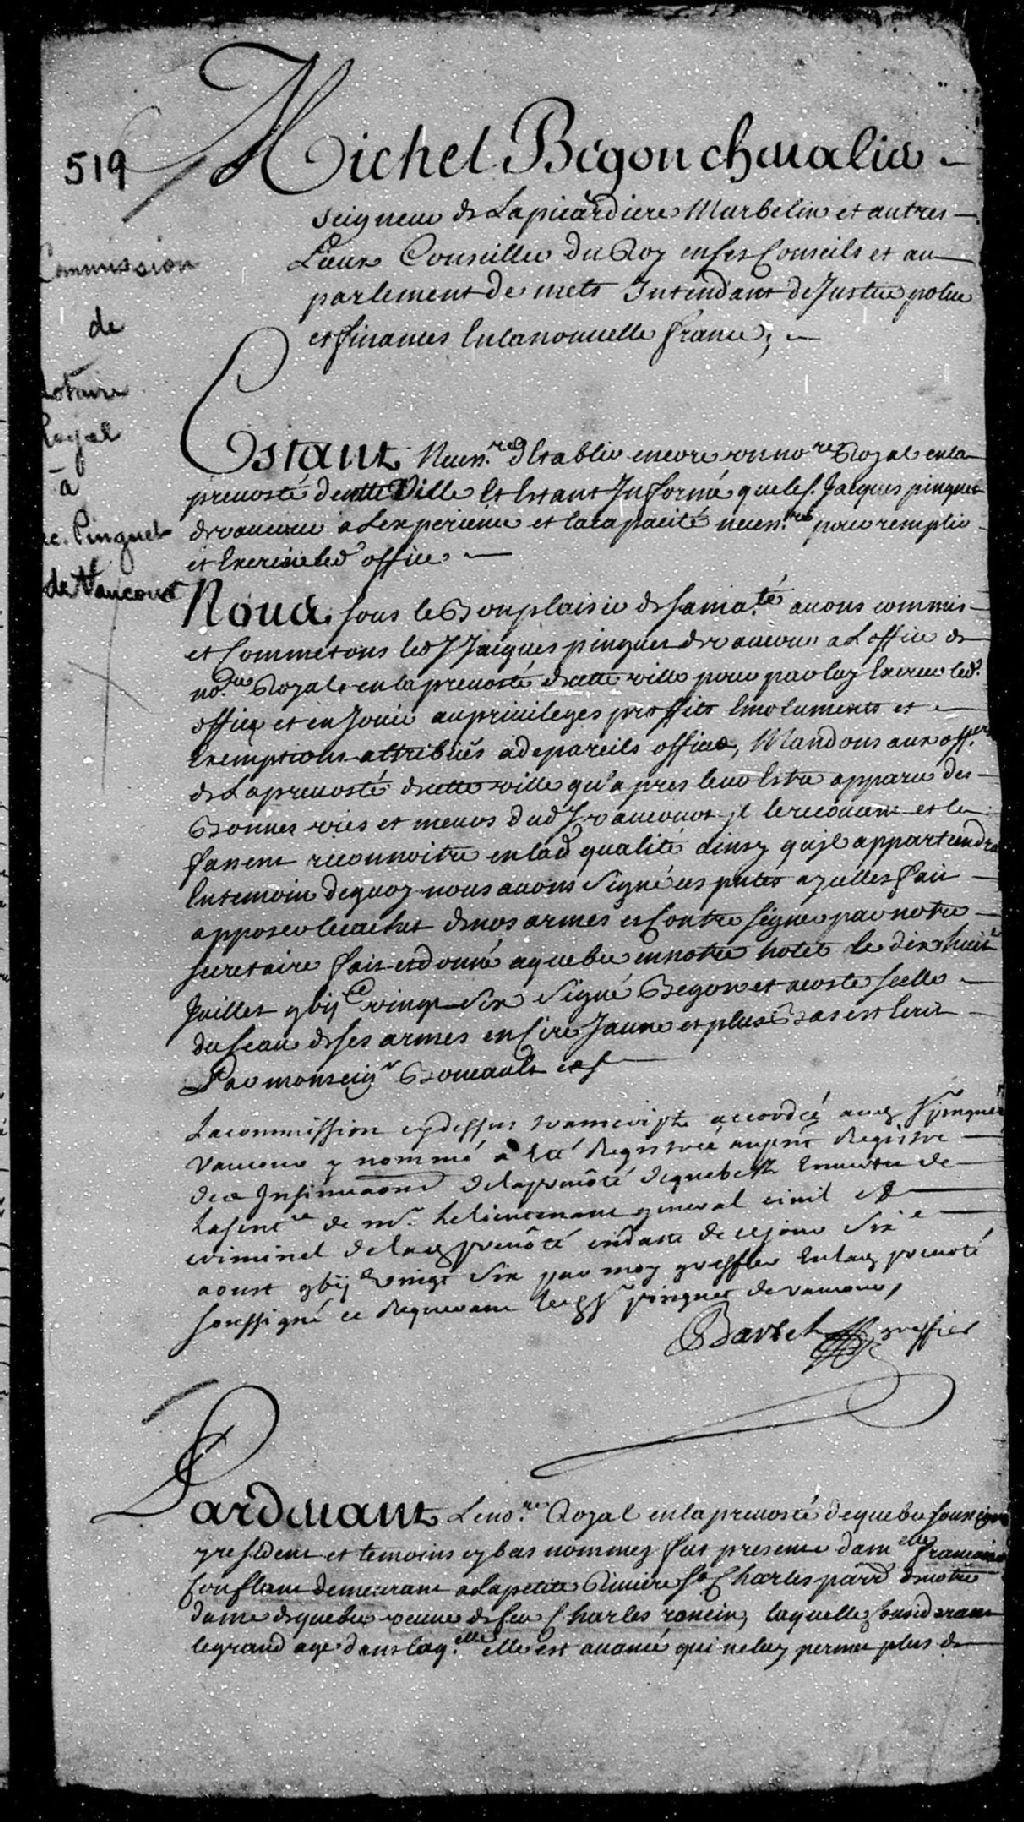 519
Commission
de
notaire
Royal
à
Pinguet
de Vaucour
Michel Bégon chevalier
seigneur de Lapicardiere Murbelin et autres
Lieux Conseiller du Roy en ses Conseils et au
parlement de mets Intendant de Justice police
et finances en la nouvelle france,
Estant Necess.re d'Etablir encore un no.re Royal en la
prevosté de cette Ville Et Estant Informé que le s. Jacques pinguet
de vaucour a L'experience et la capacité necess.res pour remplir
et Exercer led office.
Nous sous le Bon plaisir de sa ma.té avons commis
et Commetons led s.r Jacques pinguet de vaucour a L'office de
no.re Royal en la prevosté de cette ville pour par luy Exercer led.
office et en Jouir au privileges proffits Emoluments et
Exemptions attribués a de pareils offices, Mandons aux off.ers
de La prevosté de cette ville qu'apres leur Estre apparu des
Bonnes vies et meurs dud s.r vaucour il le recoivent et le
fassent reconnoitre en lad qualité ainsy qu'il appartiendra
En temoin de quoy nous avons signé ces p.ntes a y celles fait
apposer le cachet de nos armes et Contre signer par notre
secretaire fait et donné a quebec en notre hotel le dix huit
Juillet gbij.c vingt Six signé Begon et a costé scellé
du sceau de ses armes en Cire Jaune et plus Bas est Ecrit
Par monseig.r
La commission cy dessus transcripte accordée aud s.r pinguet
vaucour y nommé a Eté Registrée au p.nt Registre
des Insinuaons de la prevôté de quebek En vertu de
la sent.ce de m.r Le lieutenant general civil et
criminel de lad prevôté en date de ce jour Six.e
aoust gbij.c vingt Six par moy greffier En lad prevoté
soussigné ce Requerant led s.r pinguet de vaucour,
Barbel greffier
Pardevant Le no.re Royal en la prevosté de quebec soussigné
y resident et temoins cy bas nommez fut presente dam.elle francoise
Conflant demeurant a la petite Riviere s.t Charles parr. de notre
dame de quebec veuve de feu Charles roncin, laquelle Considerant
le grand age dans laq.elle elle est avancée qui ne luy permet plus de